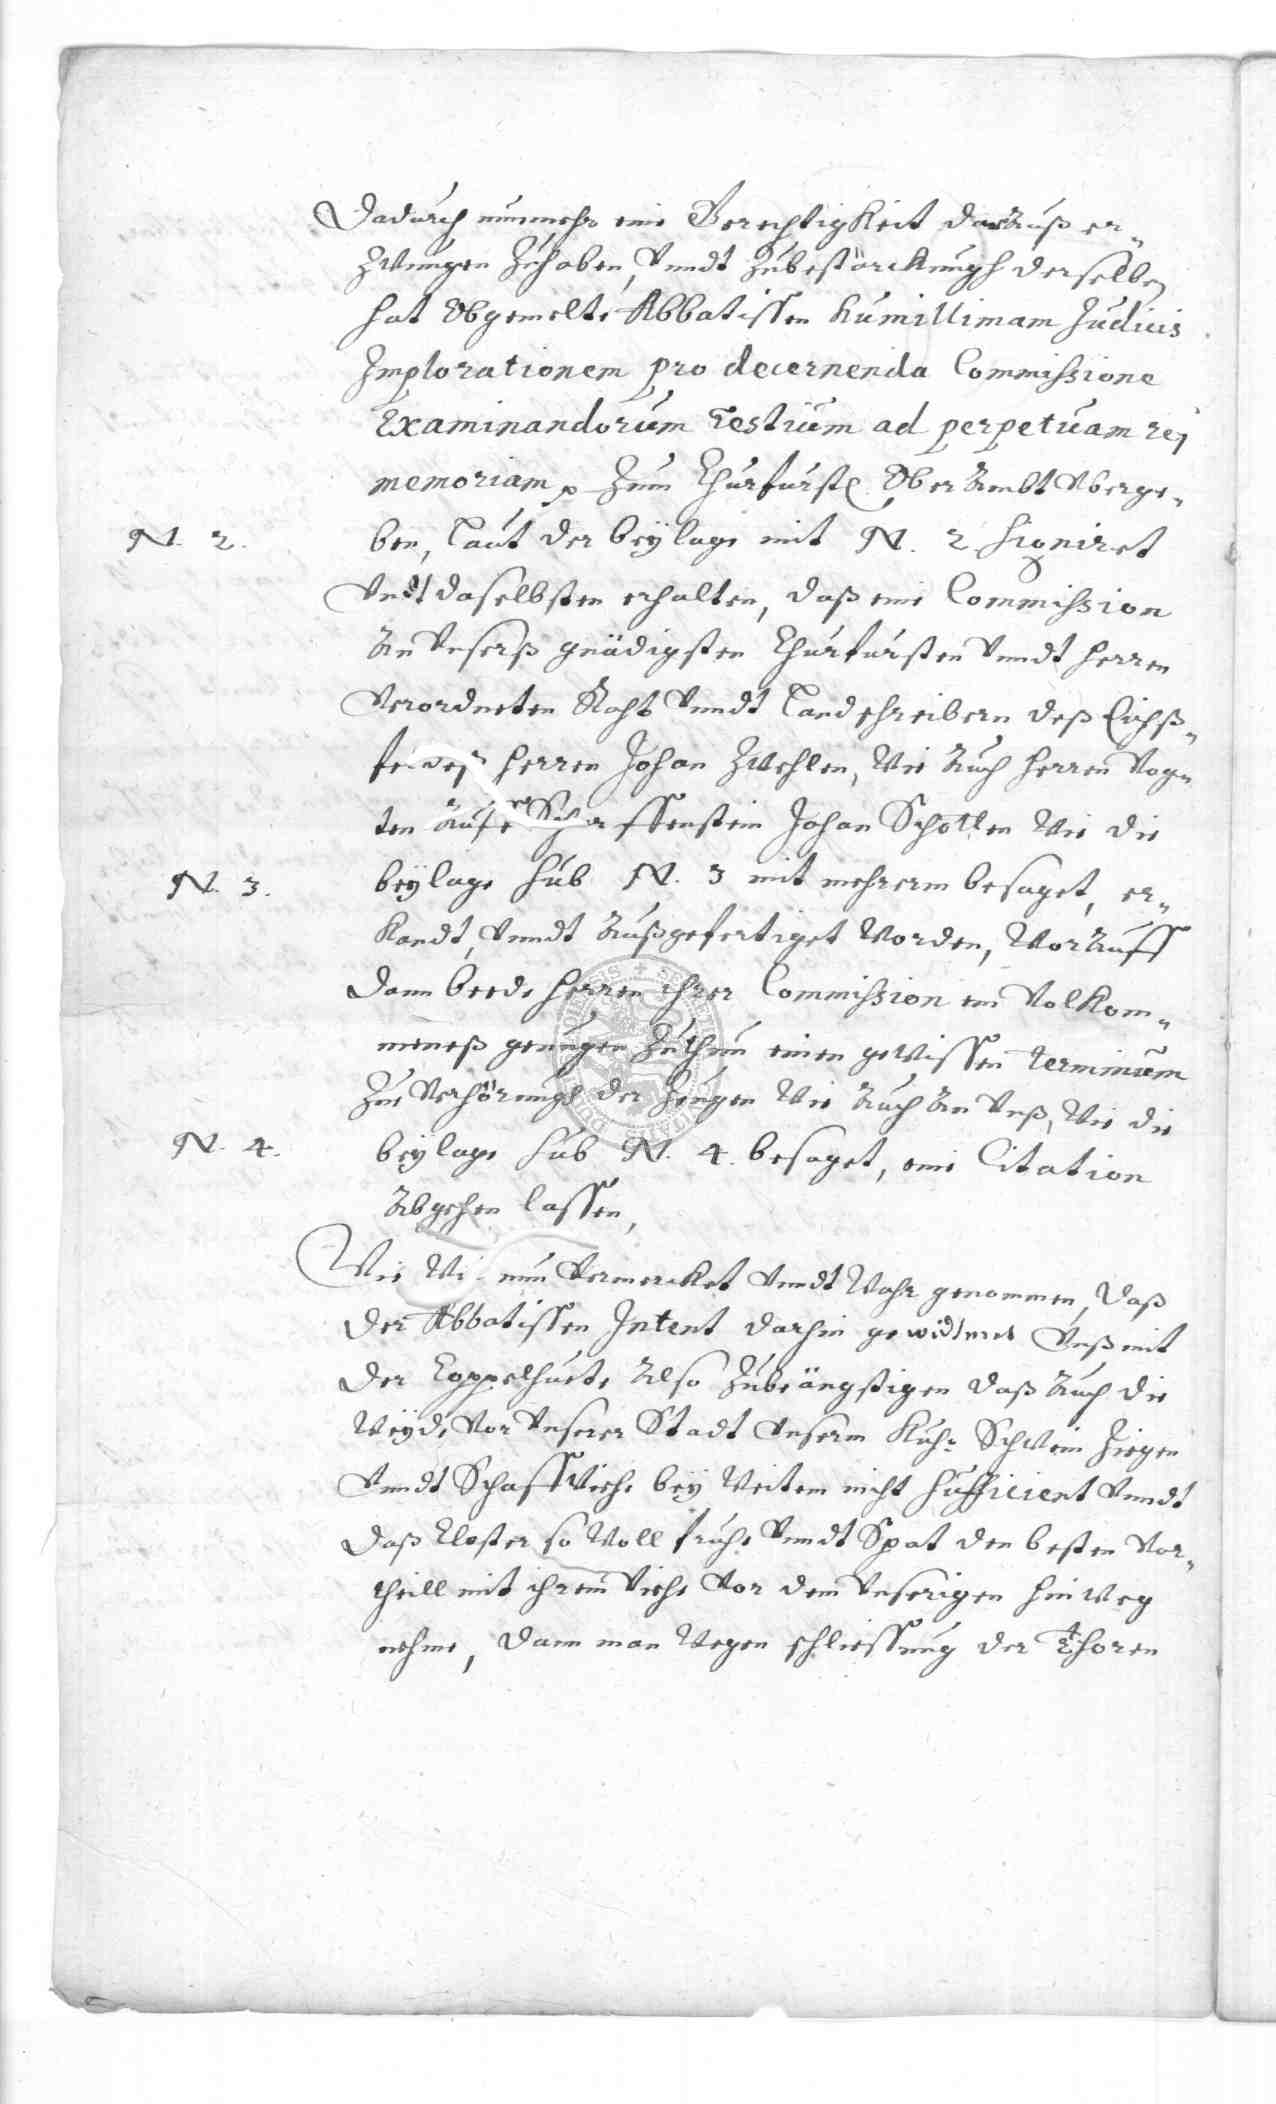 Dadurch nunmehr eine Gerechtigkeit darauß er„
zwungen zuhaben, Vnndt zubestärckungh derselben
hat Obgemelte Abbatissen humillimam Judicis
Implorationem pro decernenda Commissione
Examinandorum Testium ad perpetuam rej
memoriam p Zum Churfürstl. Ober Ambt Vberge„
N. 2. ben, Laut der beÿlage mit N. 2 signiret
Vndt daselbsten erhalten, daß eine Commission
An Vnserß gnädigsten Churfürsten Vnndt herren
Verordneten Raht Vnndt Landschreibern deß Eichß„
feldeß herren Johan Zwehlen, Wie Auch herren Vog„
ten Auf Scharffenstein Johan Schotten Wie die
N. 3. beÿlage sub N. 3 mit mehrerm besaget, er„
kandt, Vnndt Außgefertiget Worden, Worauff
dann beede herren ihrer Commission ein Volkom„
meneß genugen Zuthun einen gewissen Terminum
Zur Verhörungh der Zeugen Wie Auch An Vnß, Wie die
N. 4. beÿlage sub N. 4. besaget, eine Citation
Abgehen lassen,
Wie Wir nun Vermercket Vnndt Wahr genommen, daß
der Abbatissen Intent darhin gewidtmet Vnß mit
der Coppelhuete Also Zubeängstigen daß Auch die
Weÿde Vor Vnserer Stadt Vnserm Kuhe Schwein Ziegen
Vnndt Schaff Viehe beÿ Weitem nicht sufficient Vnndt
daß Closter so Woll fruhe Vnndt Spat den besten Vor„
theill mit ihrem Viehe Vor dem Vnserigen hinweg
nehme, dann man Wegen schliessung der Thoren